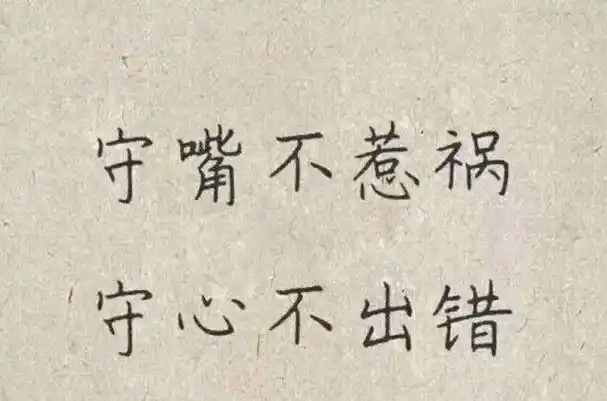 守嘴不惹祸
守心不出错